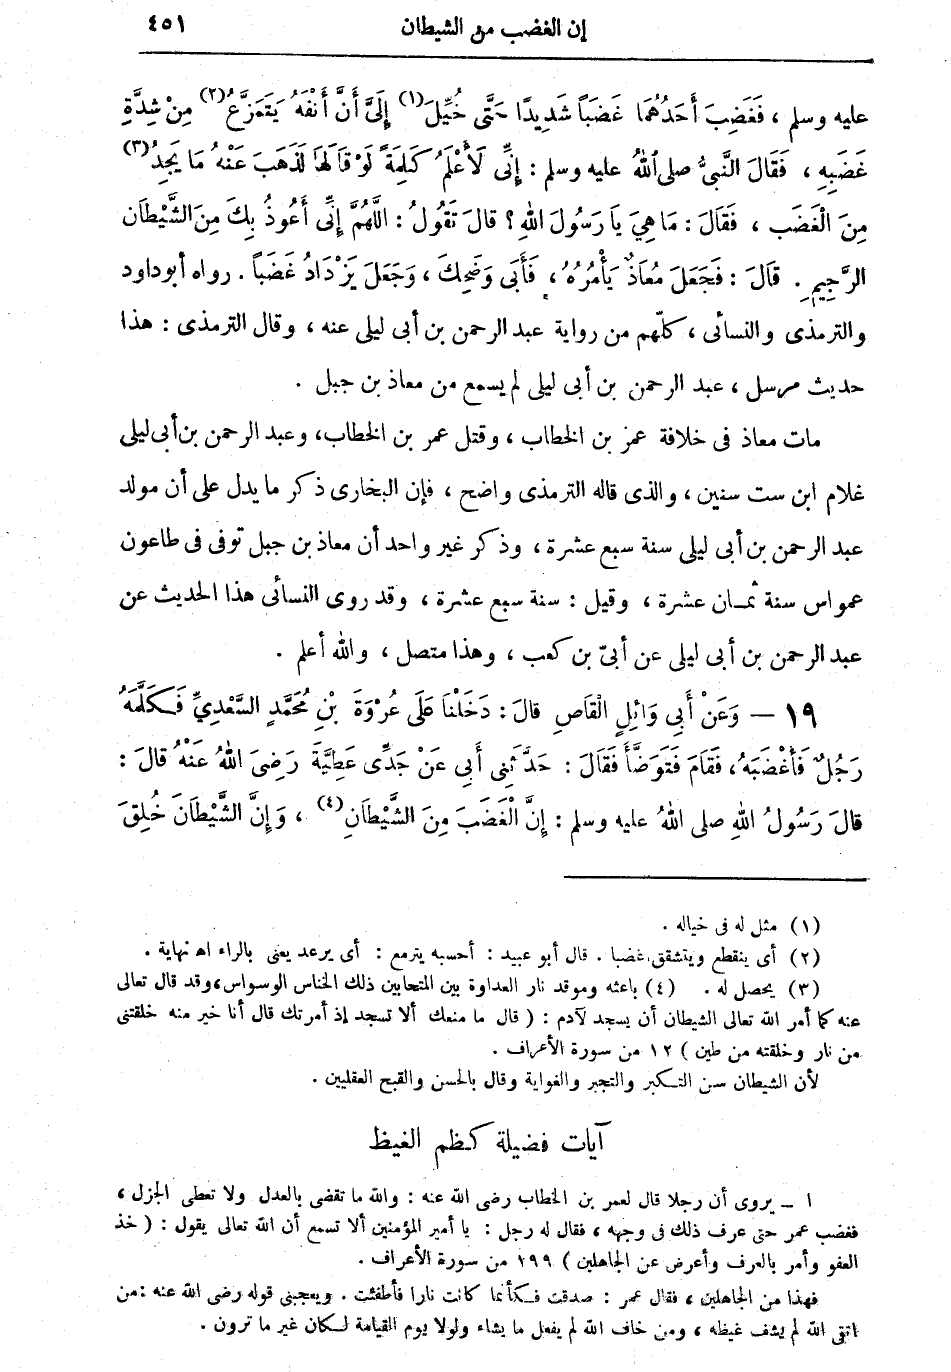 إن الغضب من الشيطان ٤٥١
عليه وسلم ، فَغَضِبَ أَحَدُهُمَا غَضَباً شَدِيدًا حَتَّى خُيِّلَ(١) إِلَىَّ أَنَّ أَنْفَهُ يَتَمَزَّعُ(٢) مِنْ شِدَّةِ
غَضَبِهِ ، فَقَالَ النَّبىُّ صلى اللهُ عليه وسلم : إِنِّى لَأَعْلَمُ كَلِمَةً لَوْ قَالَهَا لَذَهَبَ عَنْهُ مَا يَجِدُ(٣)
مِنَ الْغَضَب ، فَقَالَ : مَا هِيَ يَا رَسُولَ اللهِ ؟ قالَ تَقُولُ : اللَّهُمَّ إِنِّى أَعُوذُ بِكَ مِنَ الشَّيْطَانِ
الرَّجِيمِ . قَالَ : فَجَعَلَ مُعَاذٌ يَأْمُرُهُ ، فَأَبَى وَضَحِكَ ، وَجَعَلَ يَزْدَادُ غَضَباً . رواه أبوداود
والترمذى والنسائى ، كلّهم من رواية عبد الرحمن بن أبى ليلى عنه ، وقال الترمذى : هذا
حديث مرسل ، عبد الرحمن بن أبى ليلى لم يسمع من معاذ بن جبل .
مات معاذ فى خلافة عمر بن الخطاب ، وقتل عمر بن الخطاب ، وعبد الرحمن بن أبى ليلى
غلام ابن ست سنين ، والذى قاله الترمذى واضح ، فإن البخارى ذكر ما يدل على أن مولد
عبد الرحمن بن أبى ليلى سنة سبع عشرة ، وذكر غير واحد أن معاذ بن جبل توفى فى طاعون
عمواس سنة ثمان عشرة ، وقيل : سنة سبع عشرة ، وقد روى النسائى هذا الحديث عن
عبد الرحمن بن أبى ليلى عن أبىّ بن كعب ، وهذا متصل ، والله أعلم .
١٩ — وَعَنْ أَبِي وَائِلٍ الْقَاصِ قالَ : دَخَلْنَا عَلَى عُرْوَةَ بْنِ مُحَمَّدٍ السَّعْدِيِّ فَكَلَّمَهُ
رَجُلٌ فَأَغْضَبَهُ ، فَقَامَ فَتَوَضَّأَ فَقَالَ : حَدَّثَنِى أَبِي عَنْ جَدِّى عَطِيَّةَ رَضِىَ اللهُ عَنْهُ قالَ :
قالَ رَسُولُ اللهِ صلى اللهُ عليه وسلم : إِنَّ الْغَضَبَ مِنَ الشَّيْطَانِ(٤) ، وَإِنَّ الشَّيْطَانَ خُلِقَ
(١) مثل له فى خياله .
(٢) أى ينقطع ويتشقق غضبا . قال أبو عبيد : أحسبه يترمع : أى يرعد يعنى بالراء اه نهاية .
(٣) يحصل له . (٤) باعثه وموقد نار العداوة بين المتحابين ذلك الخناس الوسواس ، وقد قال تعالى
عنه كما أمر الله تعالى الشيطان أن يسجد لآدم : ( قال ما منعك ألا تسجد إذ أمرتك قال أنا خير منه خلقتنى
من نار وخلقته من طين ) ١٢ من سورة الأعراف .
لأن الشيطان سن التكبر والتجبر والغواية وقال بالحسن والقبح العقليين .
آيات فضيلة كظم الغيظ
ا ــ يروى أن رجلا قال لعمر بن الخطاب رضى الله عنه : والله ما تقضى بالعدل ولا تعطى الجزل ،
فغضب عمر حتى عرف ذلك فى وجهه ، فقال له رجل : يا أمير المؤمنين ألا تسمع أن الله تعالى يقول : ( خذ
العفو وأمر بالعرف وأعرض عن الجاهلين ) ١٩٩ من سورة الأعراف .
فهذا من الجاهلين ، فقال عمر : صدقت فكأنما كانت نارا فأطفئت . ويعجبنى قوله رضى الله عنه : من
اتقى الله لم يشف غيظه ، ومن خاف الله لم يفعل ما يشاء ولولا يوم القيامة لكان غير ما ترون .